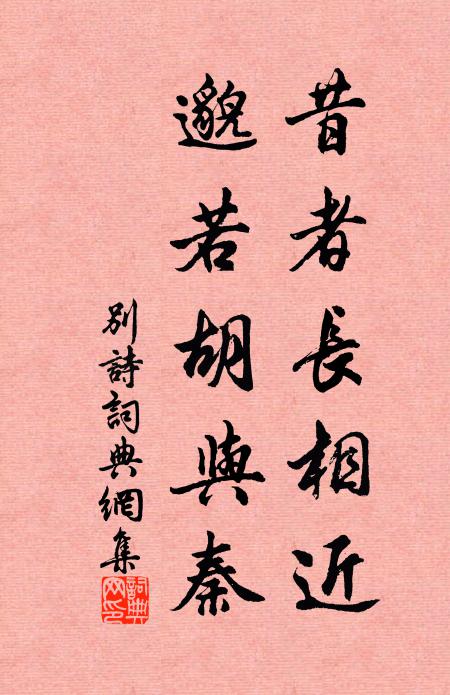 昔者長相近
邈若胡與秦
別詩詞典網集
詞典
网印